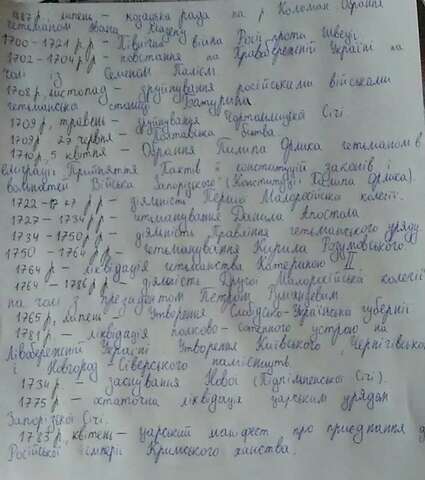 1687 р., липень – козацька рада на р. Коломак Обрання
гетьманом Івана Мазепу
1700 – 1721 р.р – Північна війна Росії проти Швеції
1702 – 1704 р.р – повстання на Правобережній Україні на
чолі із Семеном Палієм.
1708 р, листопад – зруйнування російськими військами
гетьманська столиці Батурина
1709 р, травень – зруйнування Чортомлицької Січі.
1709 р 27 червня – Полтавська битва.
1710 р, 5 квітня – Обрання Пилипа Орлика гетьманом в
еміграції Прийняття Пактів й конституцій законів і
вольностей Війська Запорізького (Конституції Пилипа Орлика).
1722 – 27 р р – діяльність Першої Малоросійської колегії.
1727 – 1734 р р – гетьманування Данила Апостола
1734 – 1750 р р – діяльність Правління гетьманського уряду
1750 – 1764 р р – гетьманування Кирила Розумовського
1764 р – ліквідація гетьманства Катериною II
1764 – 1786 р р – діяльність Другої Малоросійська колегії
на чолі з президентом Петром Румянцевим
1765 р, липень – Утворення Слобідсько-Українська губернії
1781 р – ліквідація полково-сотенного устрою на
Лівобережній Україні Утворення Київського, Чернігівського
і Новгород-Сіверського намісництв.
1734 р. – заснування Нової (Підпільненської Січі).
1775 р – остаточна ліквідація царським урядом
Запорізької Січі.
1783 р, квітень – царський маніфест про приєднання д
Російської імперії Кримського ханства.